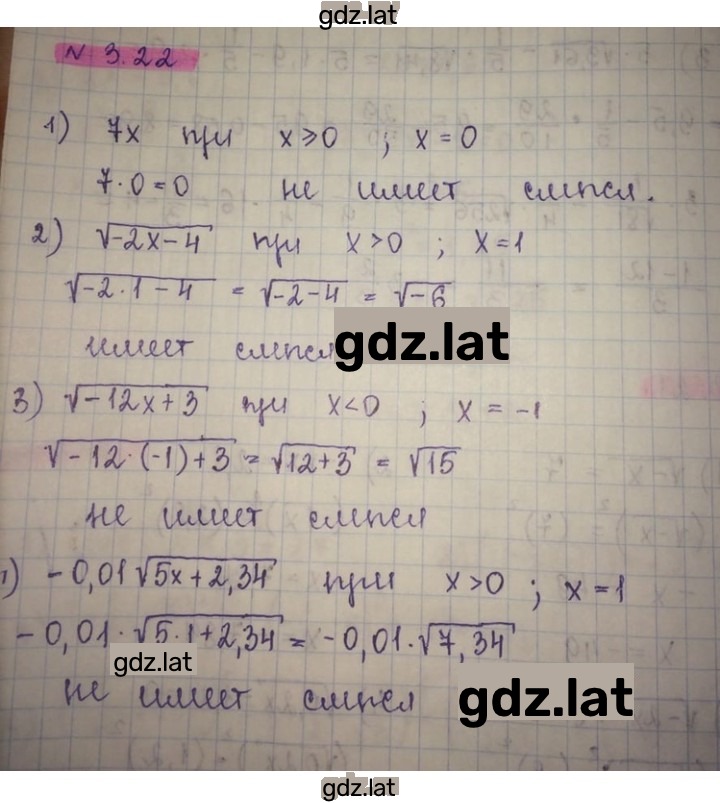 gdz.lat
№ 3.22
1) 7x при x⩾0 ; x = 0
7·0=0 не имеет смысл.
2) √-2x-4 при x>0 ; x=1
√-2·1-4 = √-2-4 = √-6
имеет смысл
gdz.lat
3) √-12x+3 при x<0 ; x = -1
√-12·(-1)+3 = √12+3 = √15
не имеет смысл
) -0,01√5x+2,34 при x>0 ; x=1
-0,01·√5·1+2,34 = -0,01·√7,34
gdz.lat
не имеет смысл
gdz.lat
gdz.lat